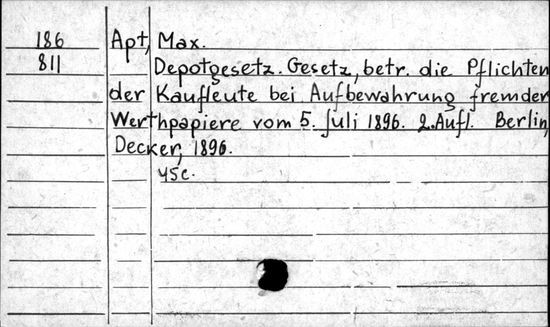 186 Apt, Max.
811 Depotgesetz. Gesetz, betr. die Pflichten
der Kaufleute bei Aufbewahrung fremder
Werthpapiere vom 5. Juli 1896. 2. Aufl. Berlin,
Decker, 1896.
45c.